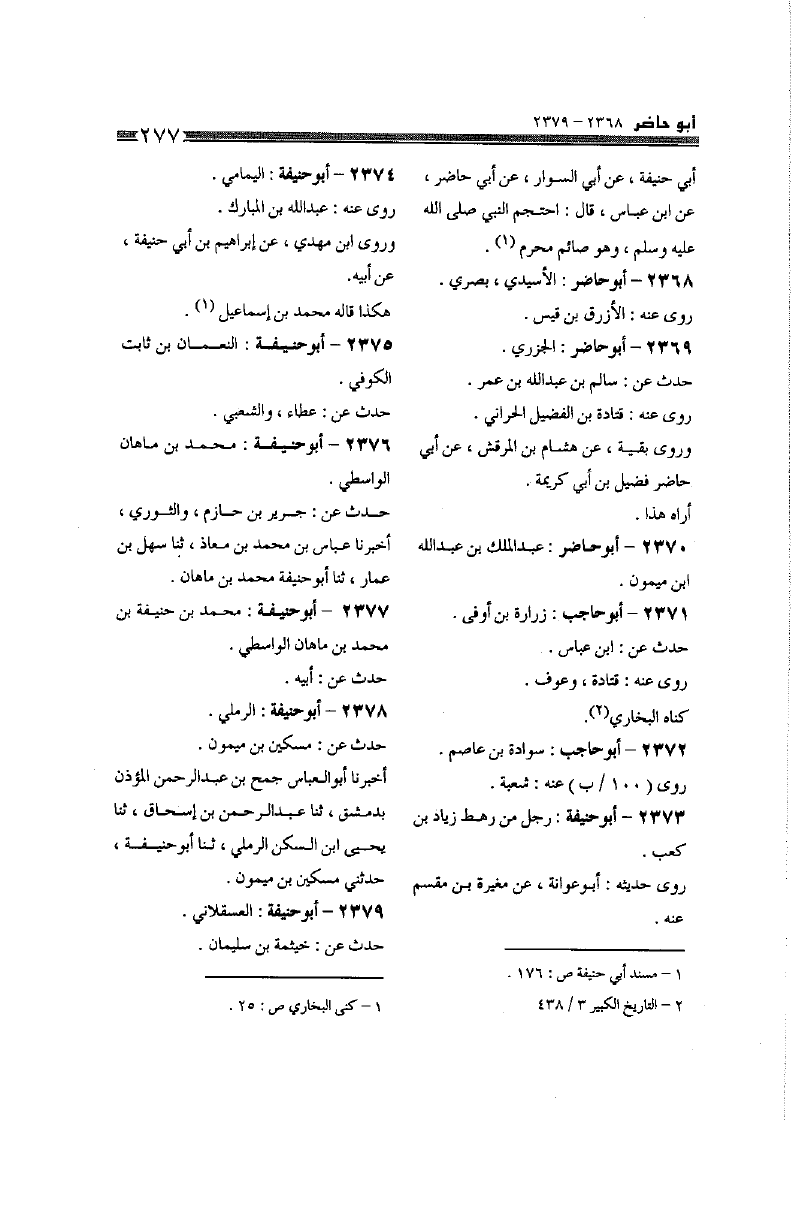 أبو حاضر ٢٣٦٨ – ٢٣٧٩
٢٧٧
أبي حنيفة ، عن أبي السوار ، عن أبي حاضر ،
عن ابن عباس ، قال : احتجم النبي صلى الله
عليه وسلم ، وهو صائم محرم (١) .
٢٣٦٨ – أبوحاضر : الأسيدي ، بصري .
روى عنه : الأزرق بن قيس .
٢٣٦٩ – أبوحاضر : الجزري .
حدث عن : سالم بن عبدالله بن عمر .
روى عنه : قتادة بن الفضيل الحراني .
وروى بقية ، عن هشام بن المرقش ، عن أبي
حاضر فضيل بن أبي كريمة .
أراه هذا .
٢٣٧٠ – أبوحاضر : عبدالملك بن عبدالله
ابن ميمون .
٢٣٧١ – أبوحاجب : زرارة بن أوفى .
حدث عن : ابن عباس .
روى عنه : قتادة ، وعوف .
كناه البخاري(٢).
٢٣٧٢ – أبوحاجب : سوادة بن عاصم .
روى ( ١٠٠ / ب ) عنه : شعبة .
٢٣٧٣ – أبوحنيفة : رجل من رهط زياد بن
كعب .
روى حديثه : أبوعوانة ، عن مغيرة بن مقسم
عنه .
١ – مسند أبي حنيفة ص : ١٧٦ .
٢ – التاريخ الكبير ٣ / ٤٣٨
٢٣٧٤ – أبوحنيفة : اليمامي .
روى عنه : عبدالله بن المبارك .
وروى ابن مهدي ، عن إبراهيم بن أبي حنيفة ،
عن أبيه.
هكذا قاله محمد بن إسماعيل (١) .
٢٣٧٥ – أبوحنيفة : النعمان بن ثابت
الكوفي .
حدث عن : عطاء ، والشعبي .
٢٣٧٦ – أبوحنيفة : محمد بن ماهان
الواسطي .
حدث عن : جرير بن حازم ، والثوري ،
أخبرنا عباس بن محمد بن معاذ ، ثنا سهل بن
عمار ، ثنا أبوحنيفة محمد بن ماهان .
٢٣٧٧ – أبوحنيفة : محمد بن حنيفة بن
محمد بن ماهان الواسطي .
حدث عن : أبيه .
٢٣٧٨ – أبوحنيفة : الرملي .
حدث عن : مسكين بن ميمون .
أخبرنا أبوالعباس جمح بن عبدالرحمن المؤذن
بدمشق ، ثنا عبدالرحمن بن إسحاق ، ثنا
يحيى ابن السكن الرملي ، ثنا أبوحنيفة ،
حدثني مسكين بن ميمون .
٢٣٧٩ – أبوحنيفة : العسقلاني .
حدث عن : خيثمة بن سليمان .
١ – كنى البخاري ص : ٢٥ .